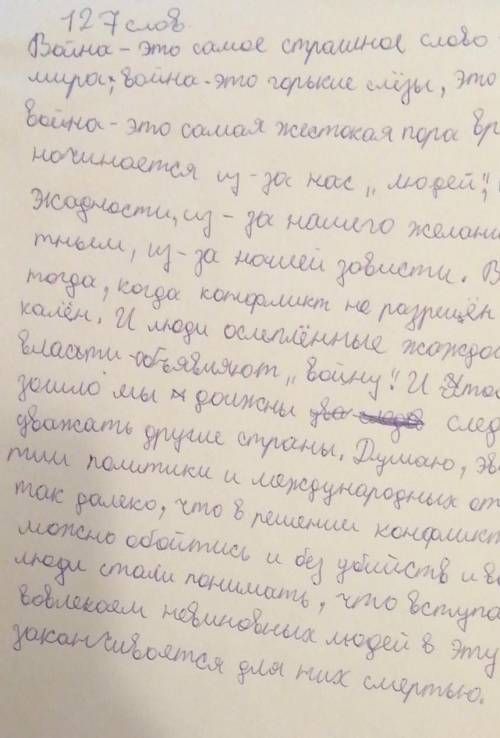 127 слов.
Война - это самое страшное слово
мира; война - это горькие слёзы, это
война - это самая жестокая пора
начинается из-за нас „людей",
жадности, из-за нашего
тным, из-за ношей зависти. В
тогда, когда конфликт не разрешён
кален. И люди ослеплённые
власти объявляют „войну". И
зошло мы должны
уважать другие страны. Думаю,
тии политики и международных
так далеко, что в решении
можно обойтись и без убийств и
люди стали понимать, что
вовлекаем невиновных людей в эту
заканчивоется для них смертью.